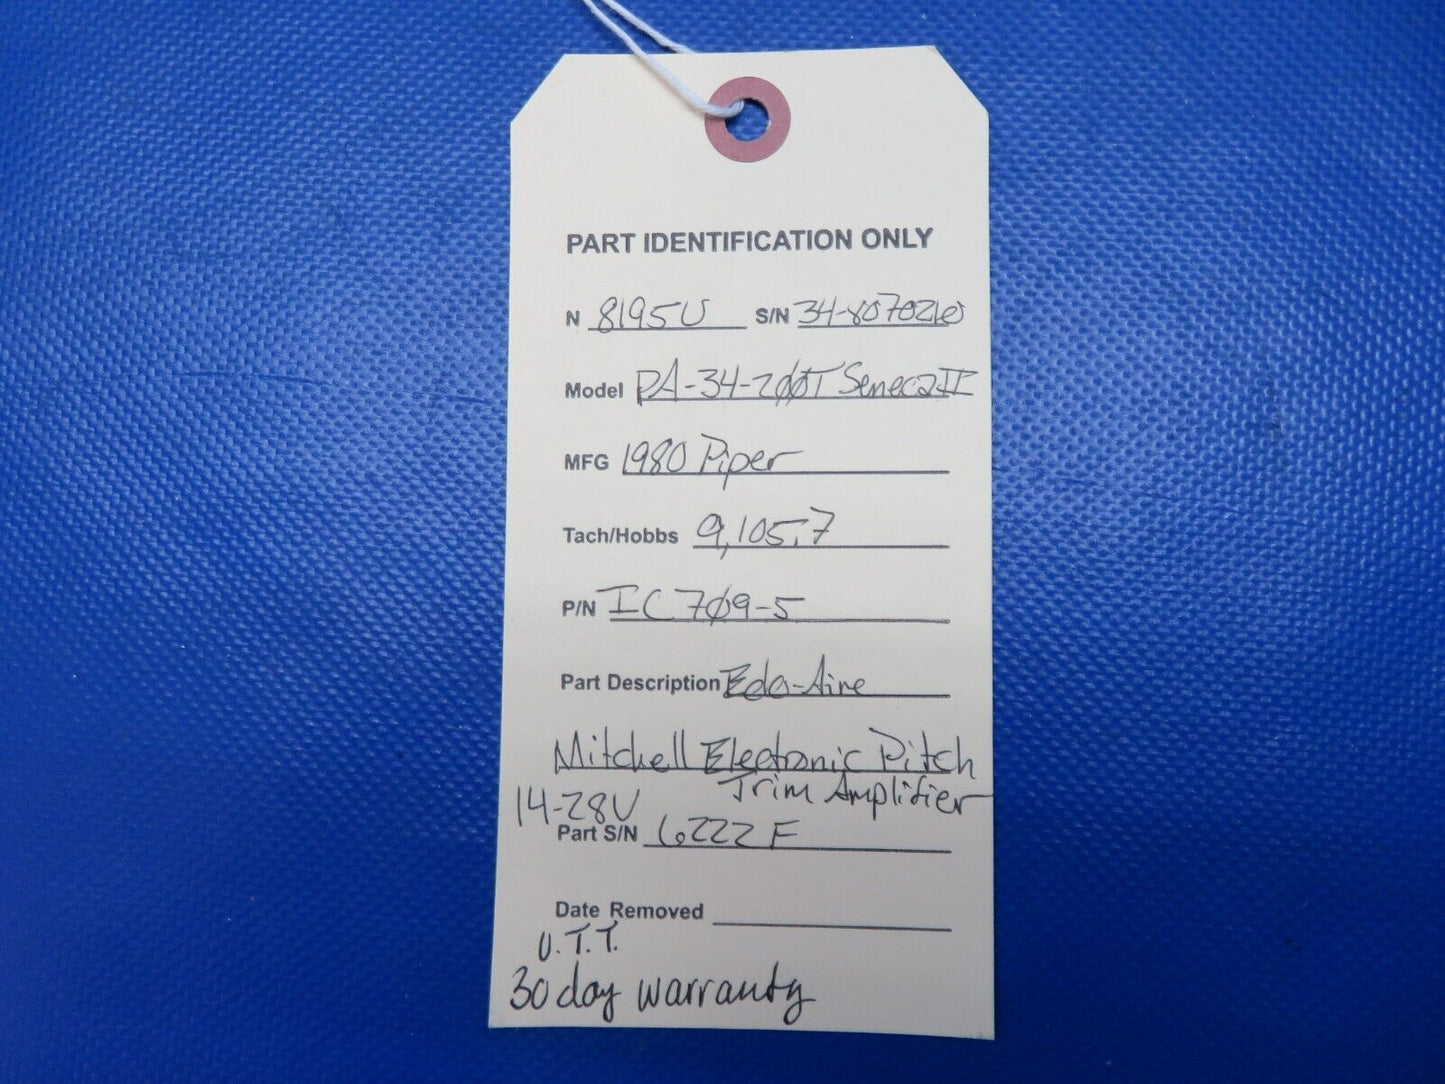 PART IDENTIFICATION ONLY
N 8195U S/N
Model PA-34-200T Seneca II
MFG 1980 Piper
Tach/Hobbs 9,105.7
P/N IC709-5
Part Description Edo-Aire
Mitchell Electronic Pitch
Trim Amplifier
14-28V
Part S/N 6222F
Date Removed
U.T.T.
30 day warranty